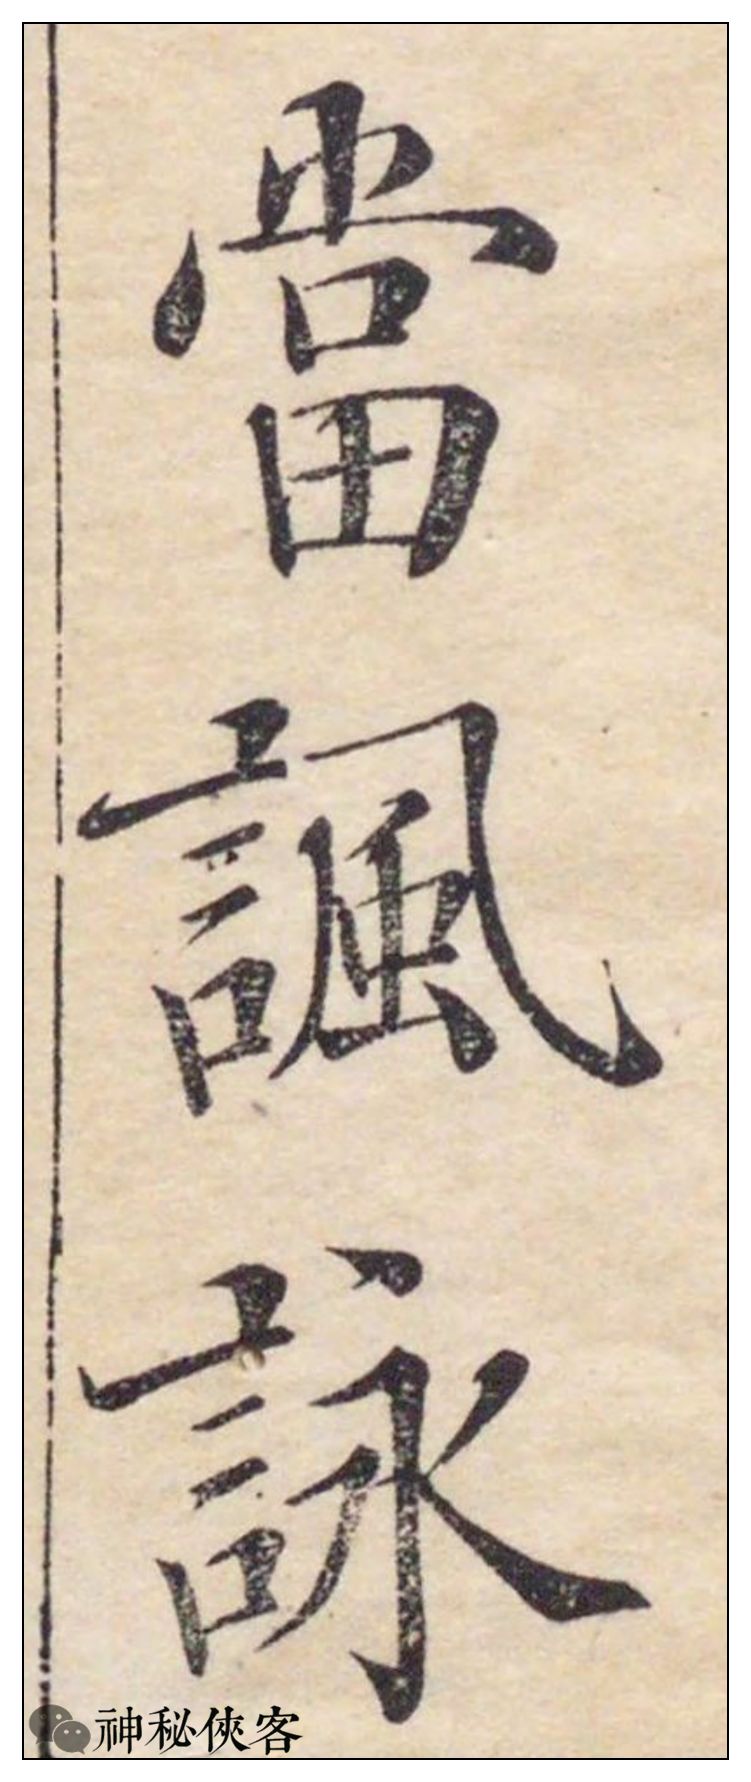 當諷詠
神秘俠客